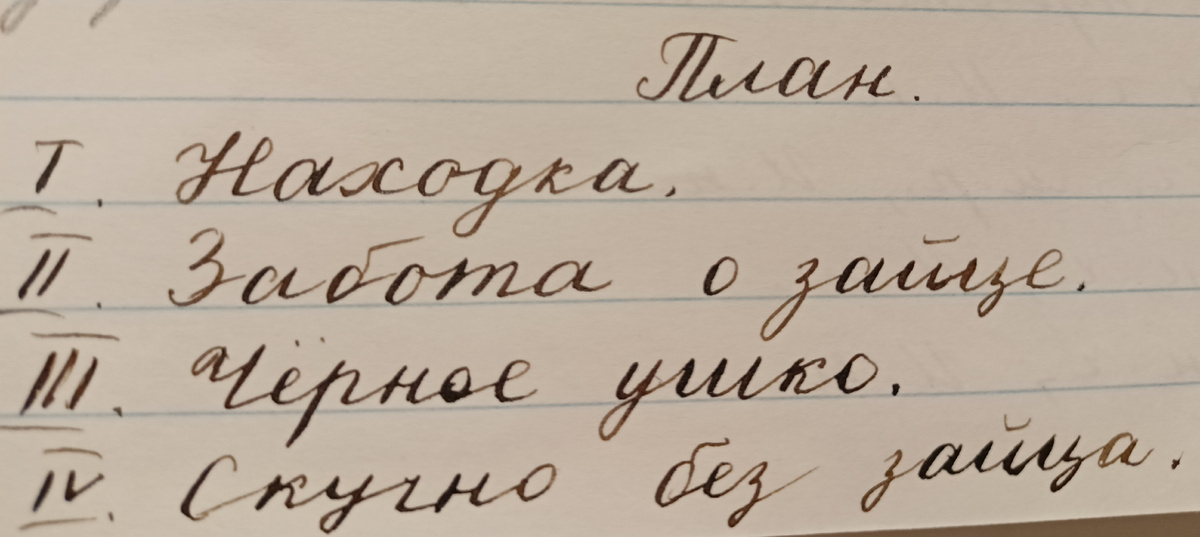 План.
I. Находка.
II. Забота о зайце.
III. Чёрное ушко.
IV. Скучно без зайца.